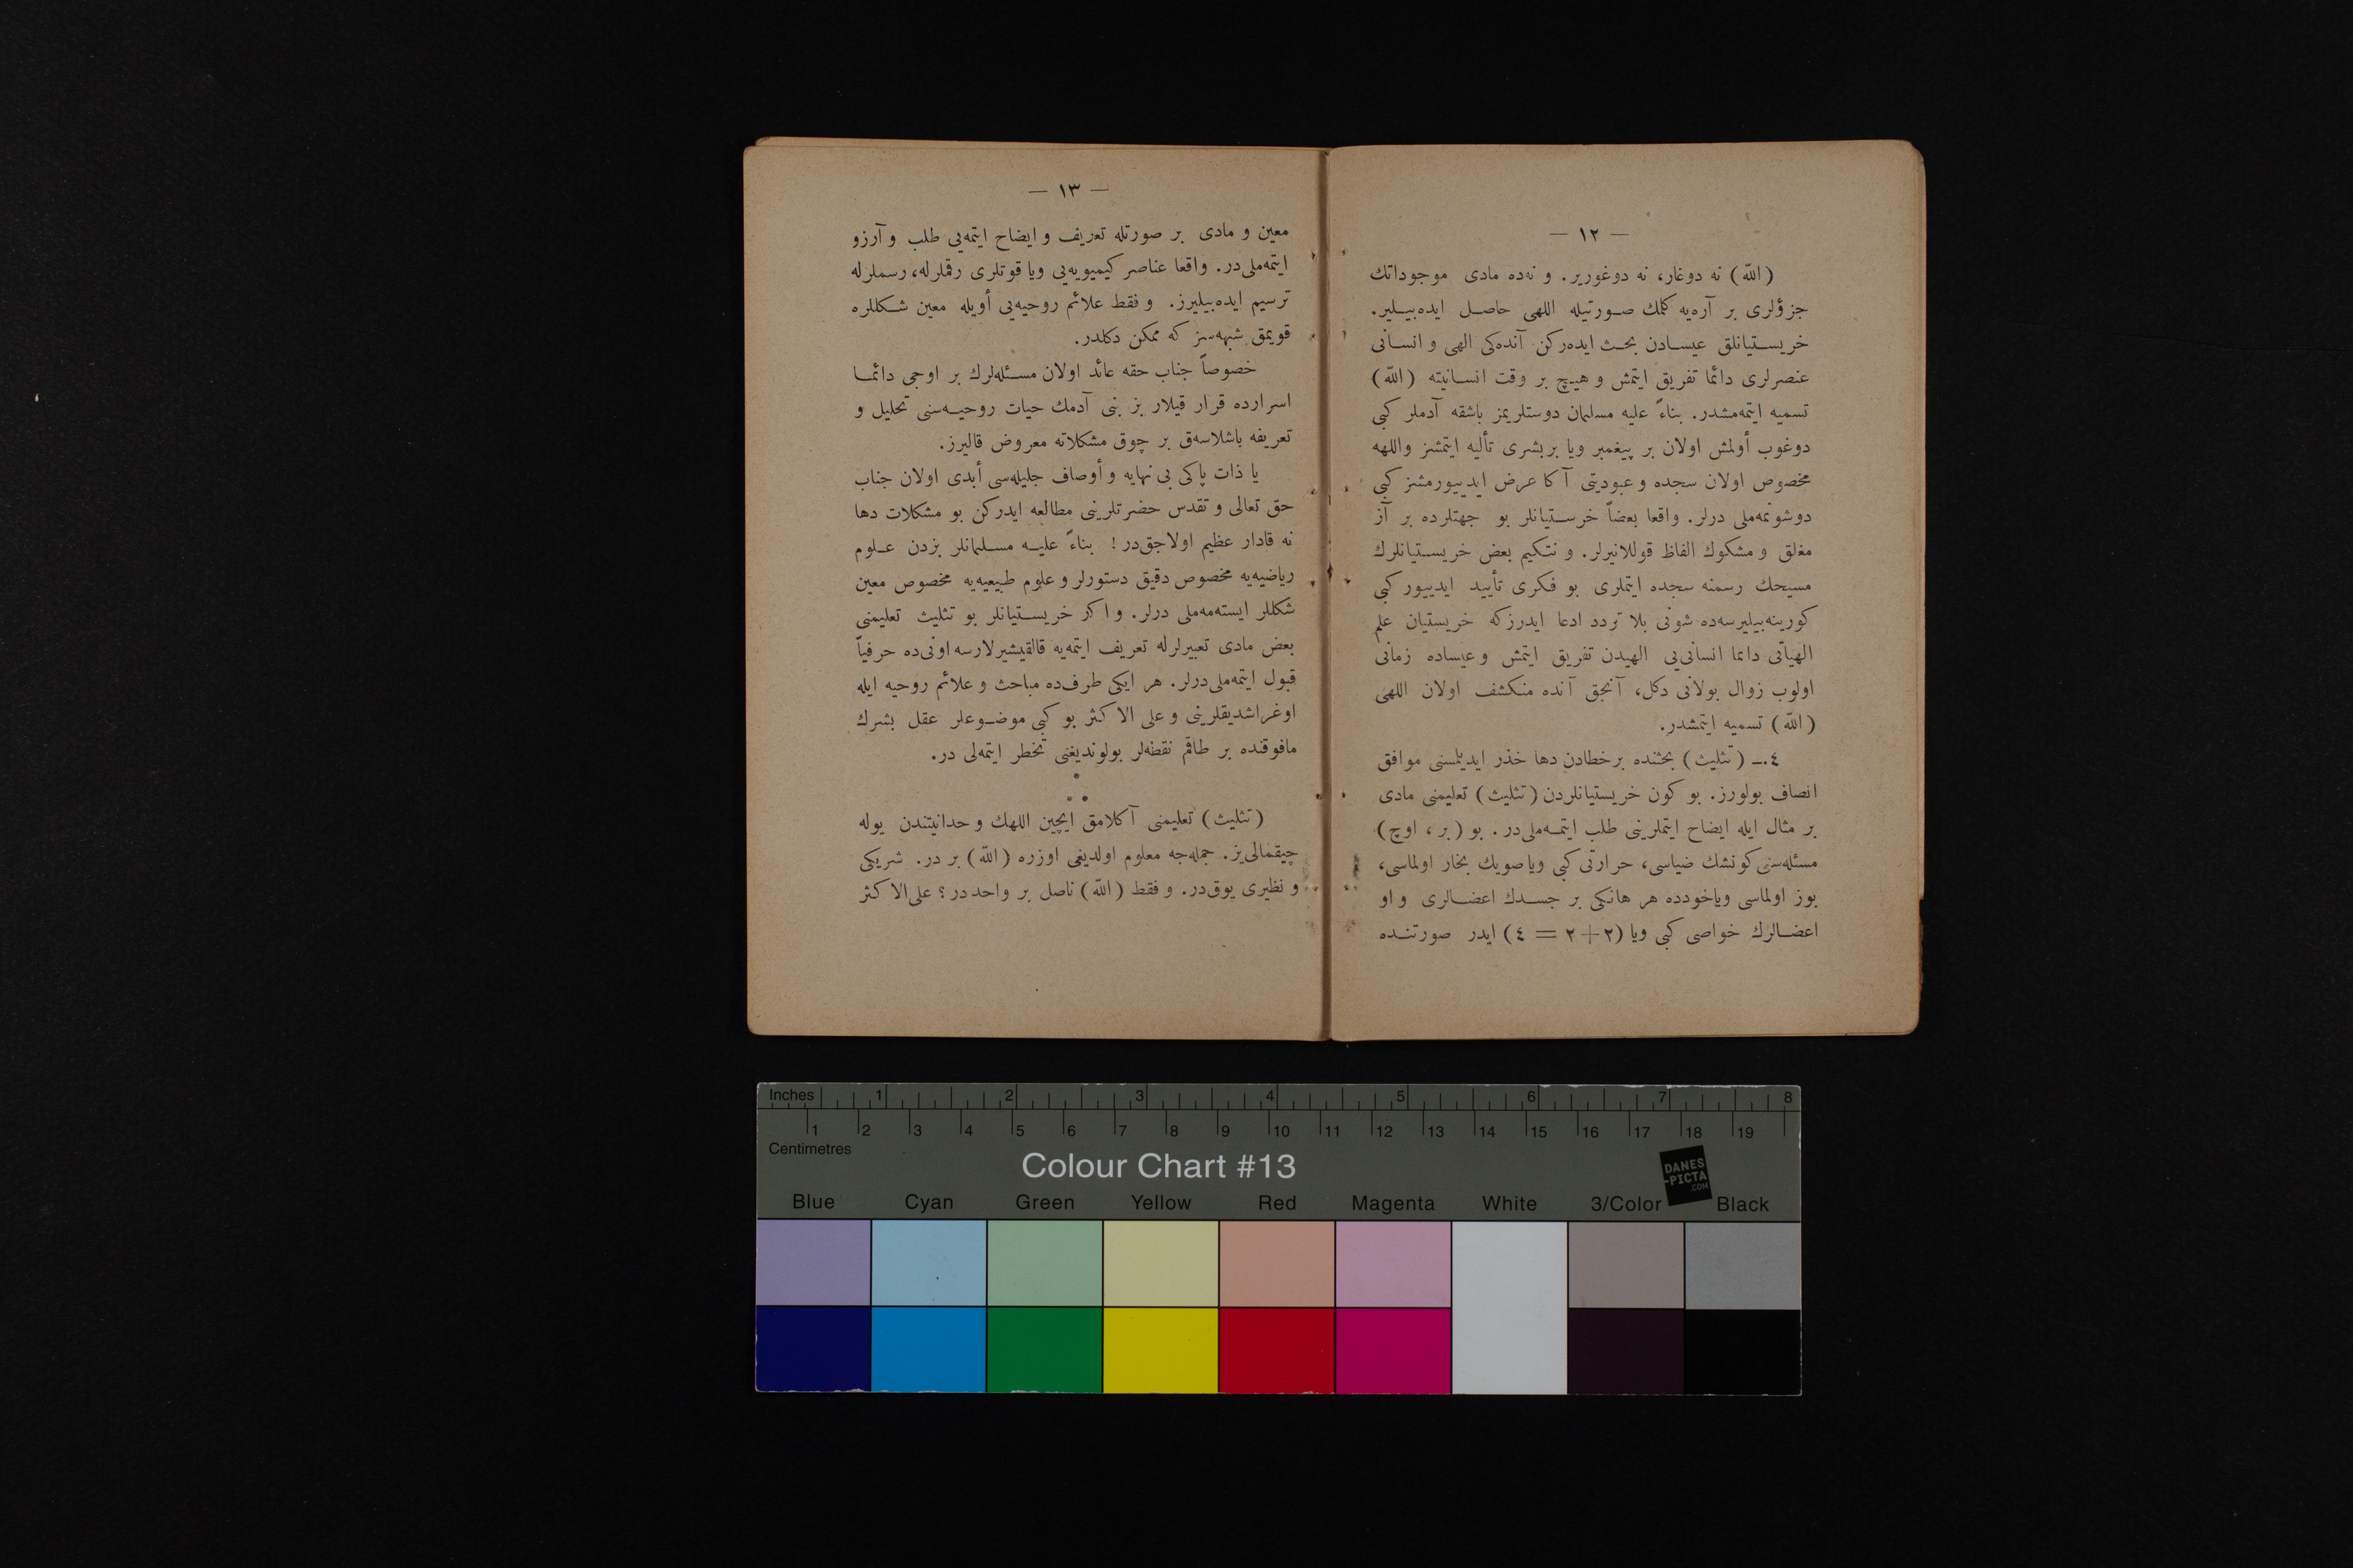 — ١٢ —
(اللّٰه) نه دوغار، نه دوغوریر. و نه‌ده مادی موجوداتك
جزؤلری بر آره‌یه كلمك صورتیله اللهی حاصل ایده‌بیلیر.
خریستیانلق عیسادن بحث ایده‌ركن آنده‌كی الهی و انسانی
عنصرلری دائما تفریق ایتمش و هیچ بر وقت انسانیته (اللّٰه)
تسمیه ایتمه‌مشدر. بناءً علیه مسلمان دوستلریمز باشقه آدملر كبی
دوغوب أولمش اولان بر پیغمبر ویا بربشری تألیه ایتمشز واللهه
مخصوص اولان سجده و عبودیتی آكا عرض ایدییورمشز كبی
دوشونمه‌ملی درلر. واقعا بعضاً خرستیانلر بو جهتلرده بر آز
مغلق و مشكوك الفاظ قوللانیرلر. و نتكیم بعض خریستیانلرك
مسیحك رسمنه سجده ایتملری بو فكری تأیید ایدییور كبی
كورینه‌بیلیرسه‌ده شونی بلا تردد ادعا ایدرزكه خریستیان علم
الهیاتی دائما انسانی‌یی الهیدن تفریق ایتمش و عیساده زمانی
اولوب زوال بولانی دكل، آنجق آنده منكشف اولان اللهی
(اللّٰه) تسمیه ایتمشدر.
٤.— (تثلیث) بحثنده برخطادن دها خذر ایدیلمسنی موافق
انصاف بولورز. بو كون خریستیانلردن (تثلیث) تعلیمنی مادی
بر مثال ایله ایضاح ایتملرینی طلب ایتمه‌ملی‌در. بو (بر، اوچ)
مسئله‌سی كونشك ضیاسی، حرارتی كبی ویا صویك بخار اولماسی،
بوز اولماسی ویاخودده هر هانكی بر جسدك اعضالری و او
اعضالرك خواصی كبی ویا (٢+٢ = ٤) ایدر صورتنده
— ١٣ —
معین و مادی بر صورتله تعریف و ایضاح ایتمه‌یی طلب و آرزو
ایتمه‌ملی‌در. واقعا عناصر كیمیویه‌یی ویا قوتلری رقملرله، رسملرله
ترسیم ایده‌بیلیرز. و فقط علائم روحیه‌یی أویله معین شكللره
قویمق شبهه‌سز كه ممكن دكلدر.
خصوصاً جناب حقه عائد اولان مسئله‌لرك بر اوجی دائما
اسرارده قرار قیلار بز بنی آدمك حیات روحیه‌سنی تحلیل و
تعریفه باشلاسه‌ق بر چوق مشكلاته معروض قالیرز.
یا ذات پاكی بی نهایه و أوصاف جلیله‌سی أبدی اولان جناب
حق تعالی و تقدس حضرتلرینی مطالعه ایدركن بو مشكلات دها
نه قادار عظیم اولاجق‌در! بناءً علیه مسلمانلر بزدن علوم
ریاضیه‌یه مخصوص دقیق دستورلر و علوم طبیعیه‌یه مخصوص معین
شكللر ایسته‌مه‌ملی درلر. و اكر خریستیانلر بو تثلیث تعلیمنی
بعض مادی تعبیرلرله تعریف ایتمه‌یه قالقیشیرلارسه اونی‌ده حرفیاً
قبول ایتمه‌ملی‌درلر. هر ایكی طرف‌ده مباحث و علائم روحیه ایله
اوغراشدیقلرینی و علی الاكثر بو كبی موضوعلر عقل بشرك
مافوقنده بر طاقم نقطه‌لر بولوندیغنی تخطر ایتمه‌لی در.
(تثلیث) تعلیمنی آكلامق ایچین اللهك وحدانیتندن یوله
چیقمالی‌یز. جمله‌جه معلوم اولدیغی اوزره (اللّٰه) بر در. شریكی
و نظیری یوق‌در. و فقط (اللّٰه) ناصل بر واحد در؟ علی‌الاكثر
Inches 1 2 3 4 5 6 7 8
1 2 3 4 5 6 7 8 9 10 11 12 13 14 15 16 17 18 19
Centimetres
Colour Chart #13
DANES
-PICTA
.COM
Blue Cyan Green Yellow Red Magenta White 3/Color Black